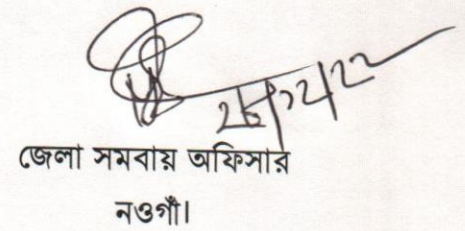 জেলা সমবায় অফিসার
নওগাঁ।